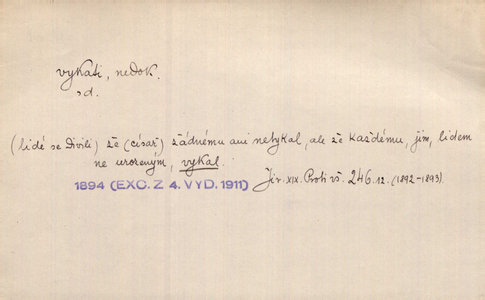 vykati, nedok.
sd.
(lidé se divili) že (císař) žádnému ani netykal, ale že každému, jim, lidem
ne urozeným, vykal.
1894 (EXC. Z 4. VYD. 1911)
Jir. XIX. Proti vš. 246.12. (1892-1893).